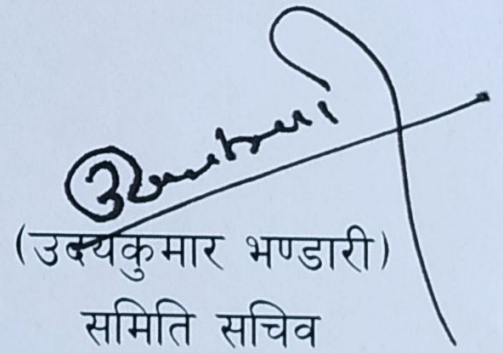 (उदयकुमार भण्डारी)
समिति सचिव